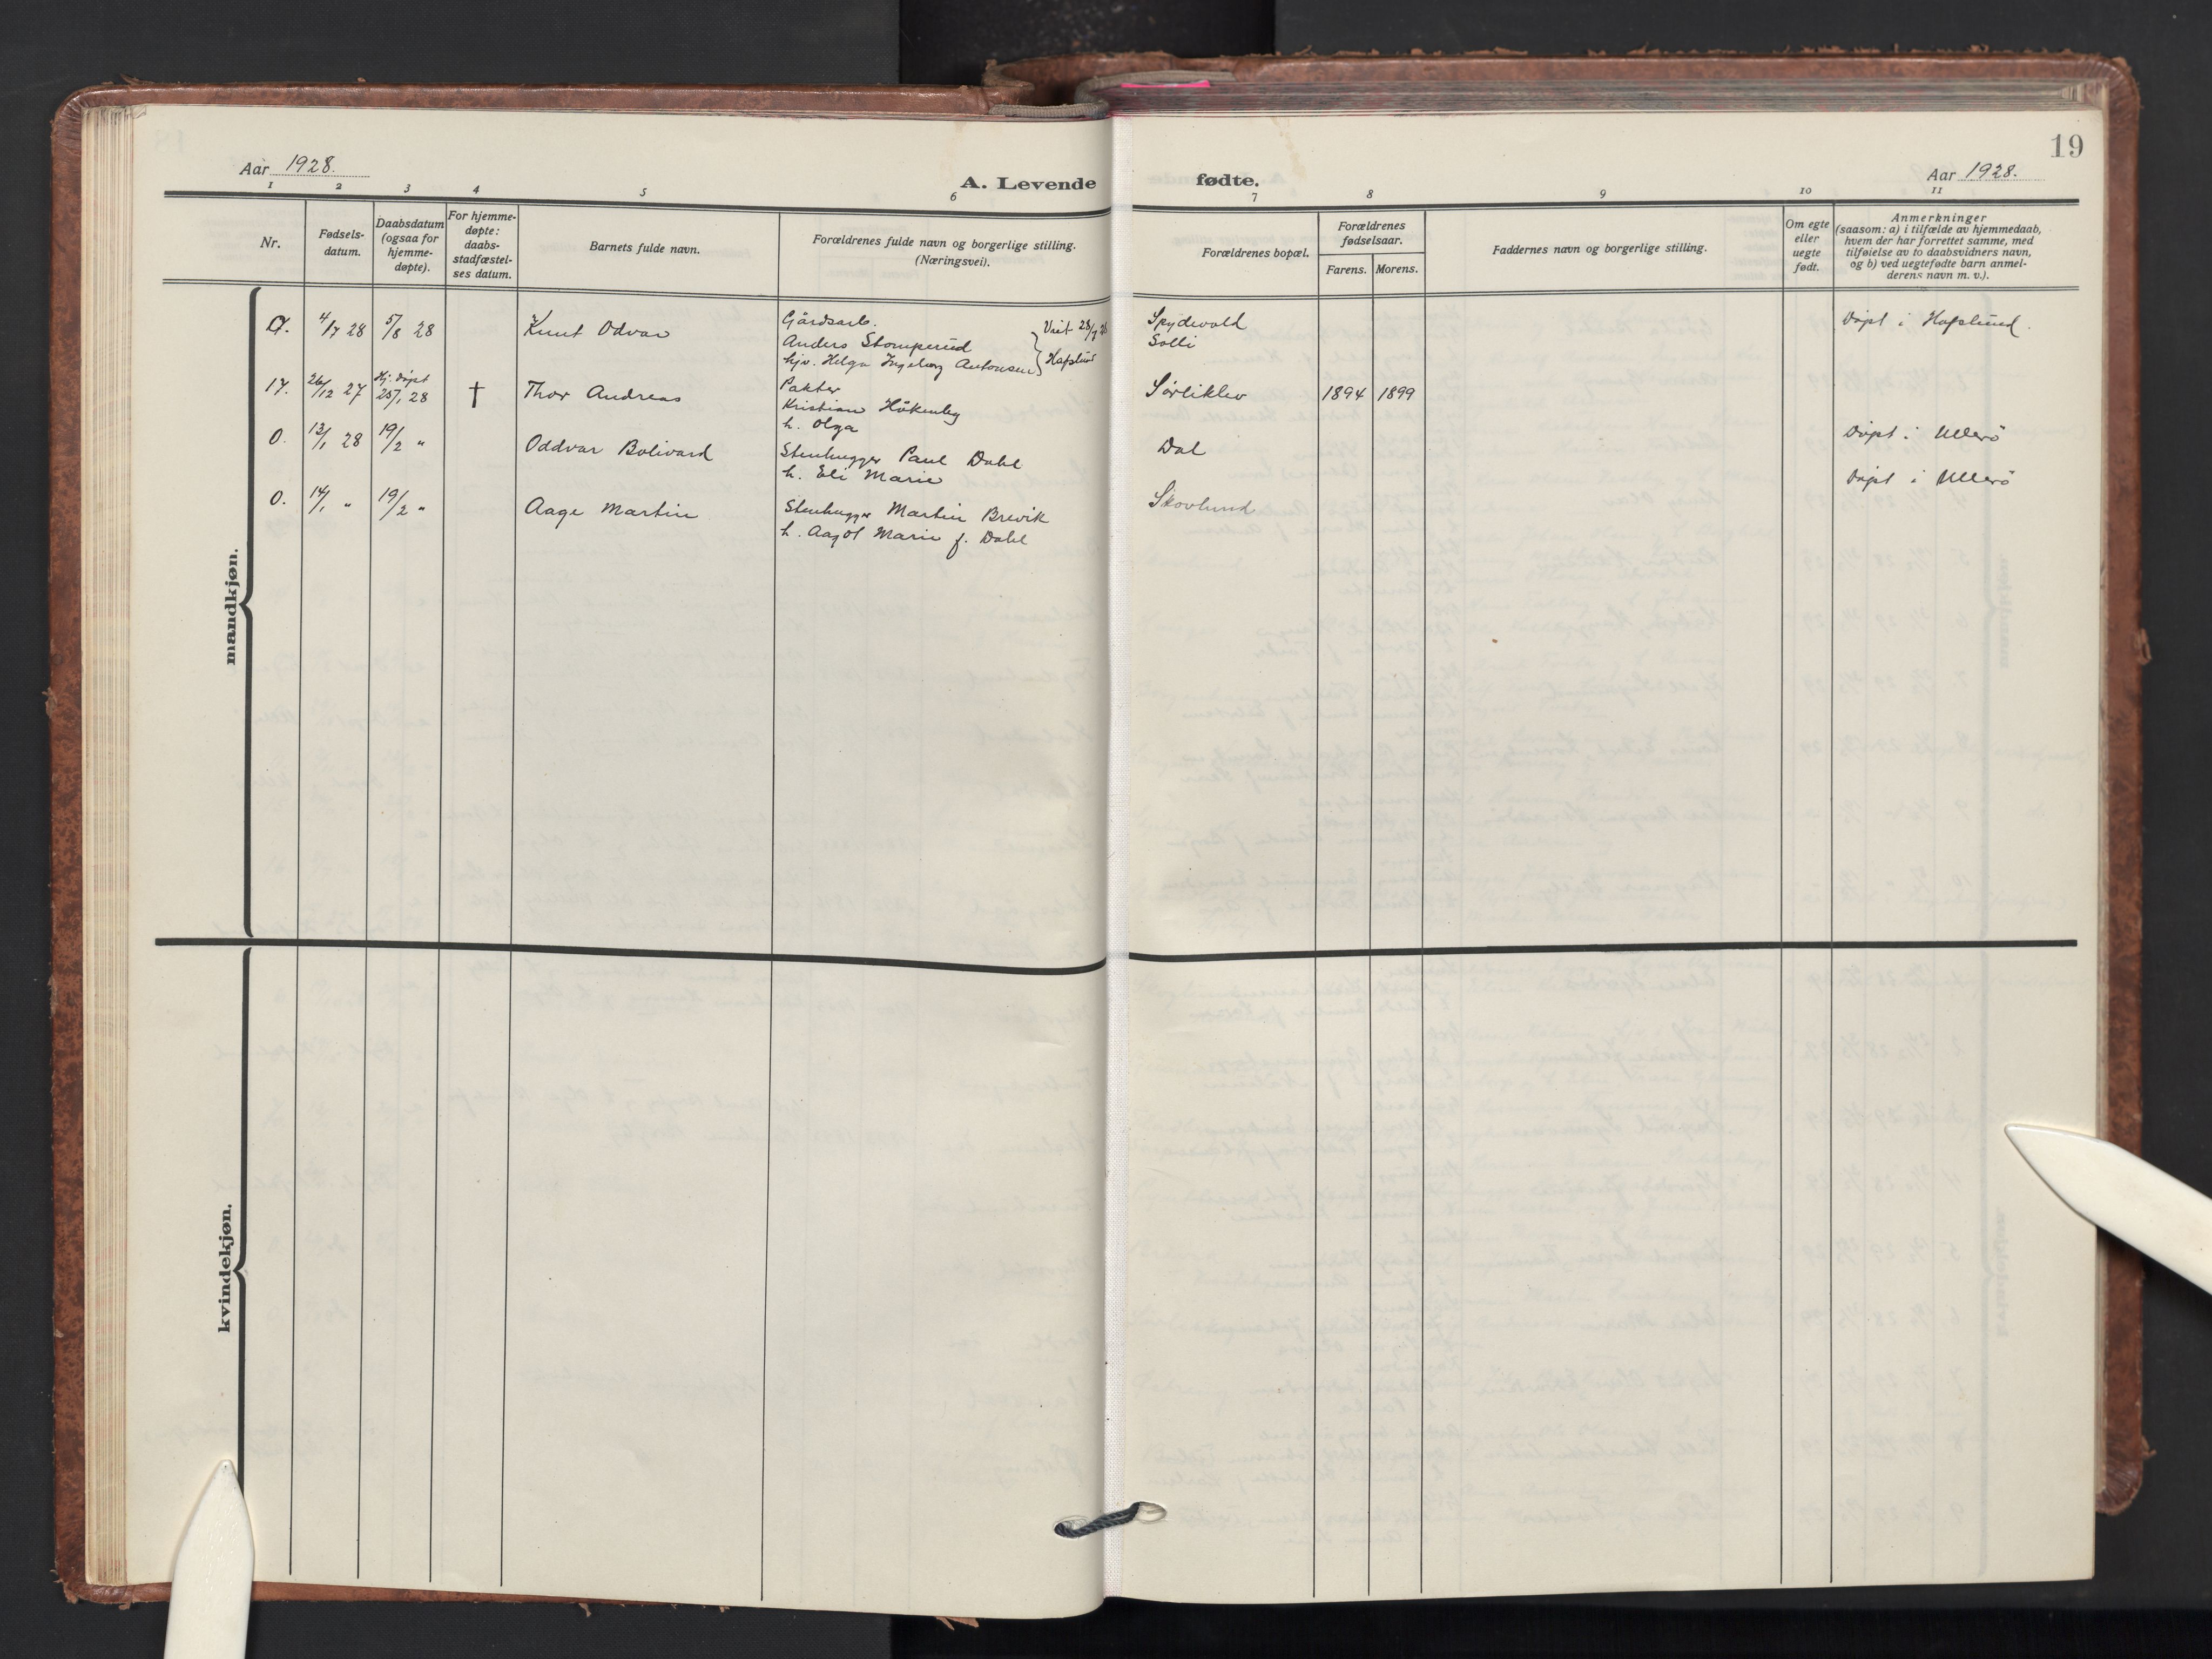 19
Aar 1928.
A. Levende fødte.
Aar 1928.
1 2 3 4 5 6 7 8 9 10 11
Nr.
Fødsels-
datum.
Daabsdatum
(ogsaa for
hjemme-
døpte).
For hjemme-
døpte:
daabs-
stadfæstel-
ses datum.
Barnets fulde navn.
Forældrenes fulde navn og borgerlige stilling.
(Næringsvei).
Forældrenes bopæl.
Forældrenes
fødselsaar.
Farens. Morens.
Faddernes navn og borgerlige stilling.
Om egte
eller
uegte
født.
Anmerkninger
(saasom: a) i tilfælde av hjemmedaab,
hvem der har forrettet samme, med
tilføielse av to daabsvidners navn,
og b) ved uegtefødte barn anmel-
derens navn m. v.).
mandkjøn.
4/7 28 5/8 28 Knut Odvar
Gårdsarb.
Anders Stomperud
hjv. Helga Ingeborg Antonsen
Viet 28/7 28
Hafslund
Spydevold
Solli
Døpt i Hafslund.
17. 26/12 27 Hj. døpt
25/1 28 † Thor Andreas
Pakter
Kristian Håkenby
h. Olga
Sørliklev 1894 1899
0. 13/1 28 19/2 " Oddvar Bolivard
Stenhugger Paul Dahl
h. Eli Marie
Dal
Døpt i Ullerö
0. 14/1 " 19/2 " Aage Martin
Stenhugger Martin Brevik
h. Aagot Marie f. Dahl
Skovlund
Døpt i Ullerö
kvindekjøn.